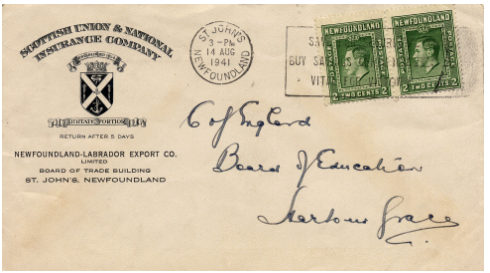 SCOTTISH UNION & NATIONAL
INSURANCE COMPANY
RETURN AFTER 5 DAYS
NEWFOUNDLAND-LABRADOR EXPORT CO.
LIMITED
BOARD OF TRADE BUILDING
ST. JOHN'S, NEWFOUNDLAND
ST. JOHN'S
3-PM
14 AUG
1941
NEWFOUNDLAND
BUY
NEWFOUNDLAND
POSTAGE POSTAGE
2 TWO CENTS 2
NEWFOUNDLAND
POSTAGE POSTAGE
2 TWO CENTS 2
C of England
Board of Education
Harbour Grace